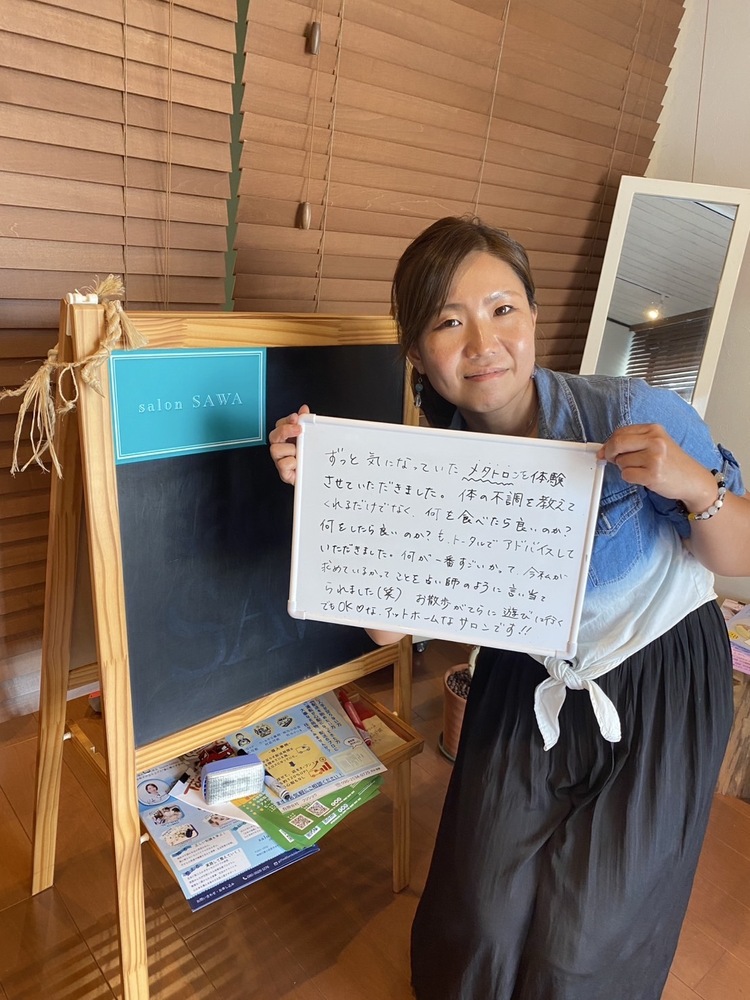 salon SAWA
ずっと 気になっていた メタトロンを体験
させていただきました。 体の不調を教えて
くれるだけでなく、何を食べたら良いのか?
何をしたら良いのか? も、トータルで アドバイスして
いただきました。何が一番すごいかって、今私が
求めているかってことを占い師のように 言い当て
られました(笑) お散歩がてらに 遊びに行く
でもOK♡な、アットホームな サロンです!!